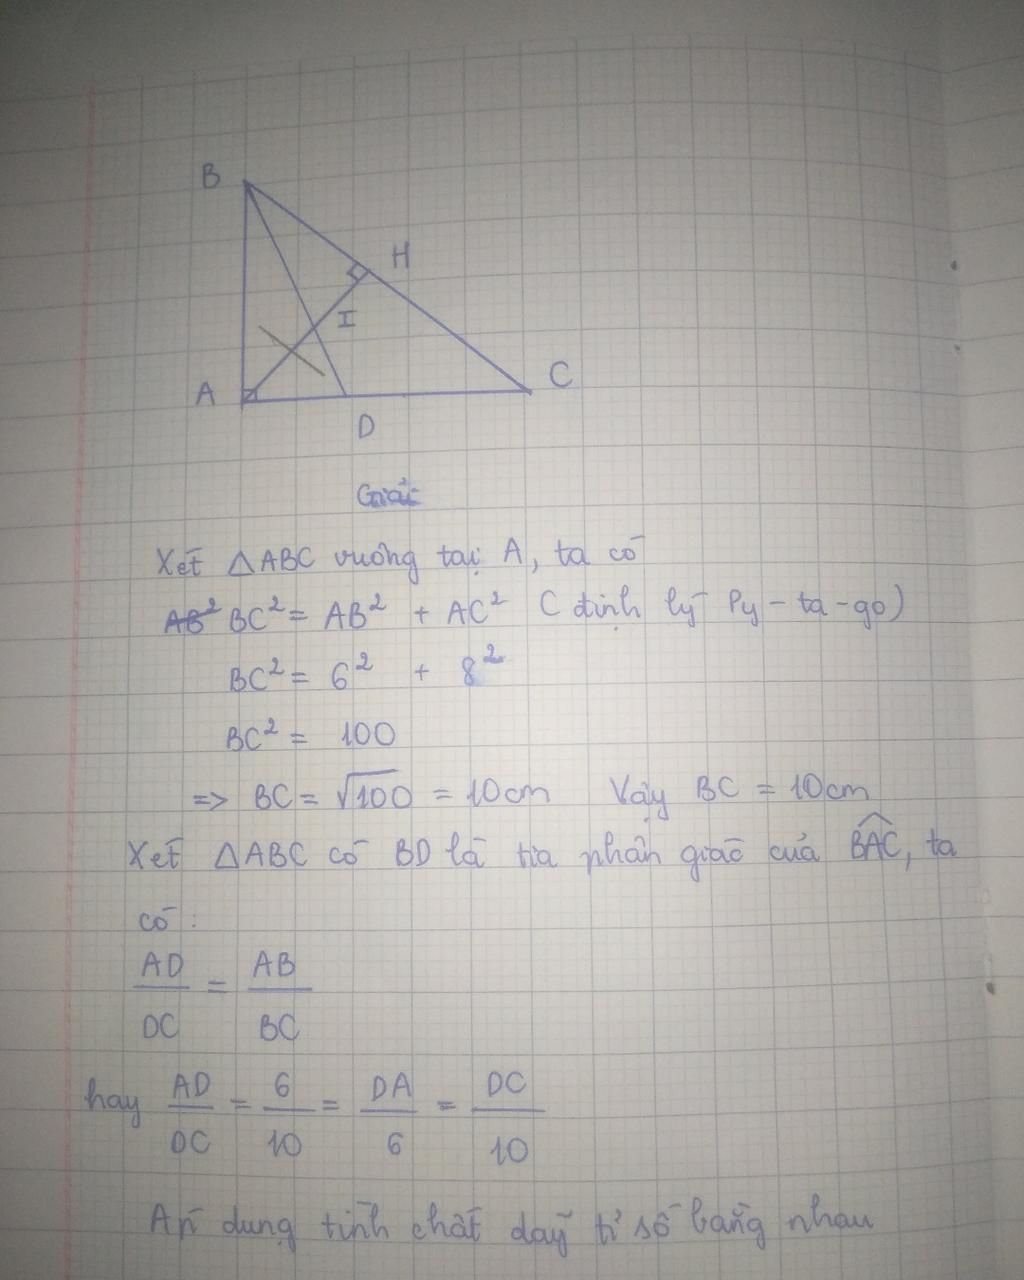 B
H
I
A
C
D
Giải
Xét △ABC vuông tại A, ta có
AB² BC² = AB² + AC² ( định lý Py - ta - go )
BC² = 6² + 8²
BC² = 100
=> BC = √100 = 10cm Vậy BC = 10cm
Xét △ABC có BD là tia phân giác của \widehat{BAC}, ta
có :
AD/DC = AB/BC
hay AD/DC = 6/10 = DA/6 = DC/10
Áp dụng tính chất dãy tỉ số bằng nhau